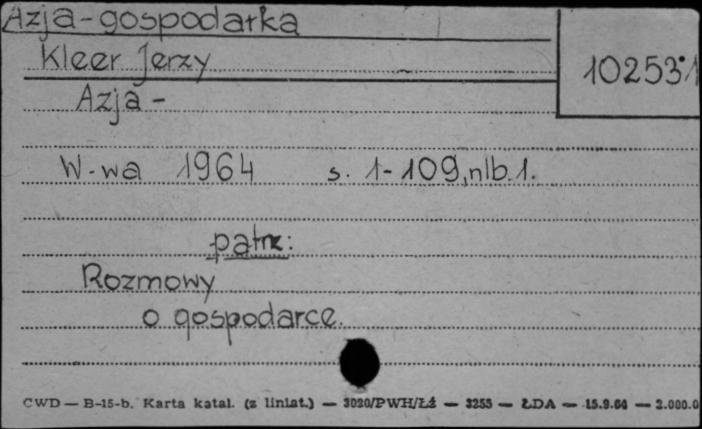 Azja-gospodarka
Kleer Jerzy
102531
Azja -
W-wa 1964 s. 1-109, nlb. 1.
patrz:
Rozmowy
o gospodarce.
CWD — B-15-b. Karta katal. (z liniat.) — 3020/PWH/Łź — 3255 — ŁDA — 15.9.64 — 2.000.0